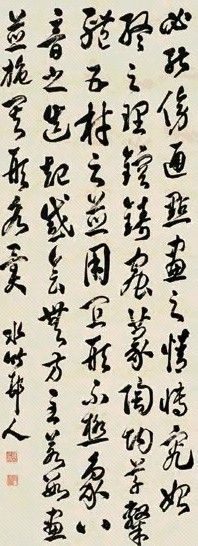 必能傍通點畫之情博究始
終之理鎔鑄蟲篆陶均草隸
體五材之並用儀形不極象八
音之迭起感會無方至若數畫
並施其形各異 水竹邨人